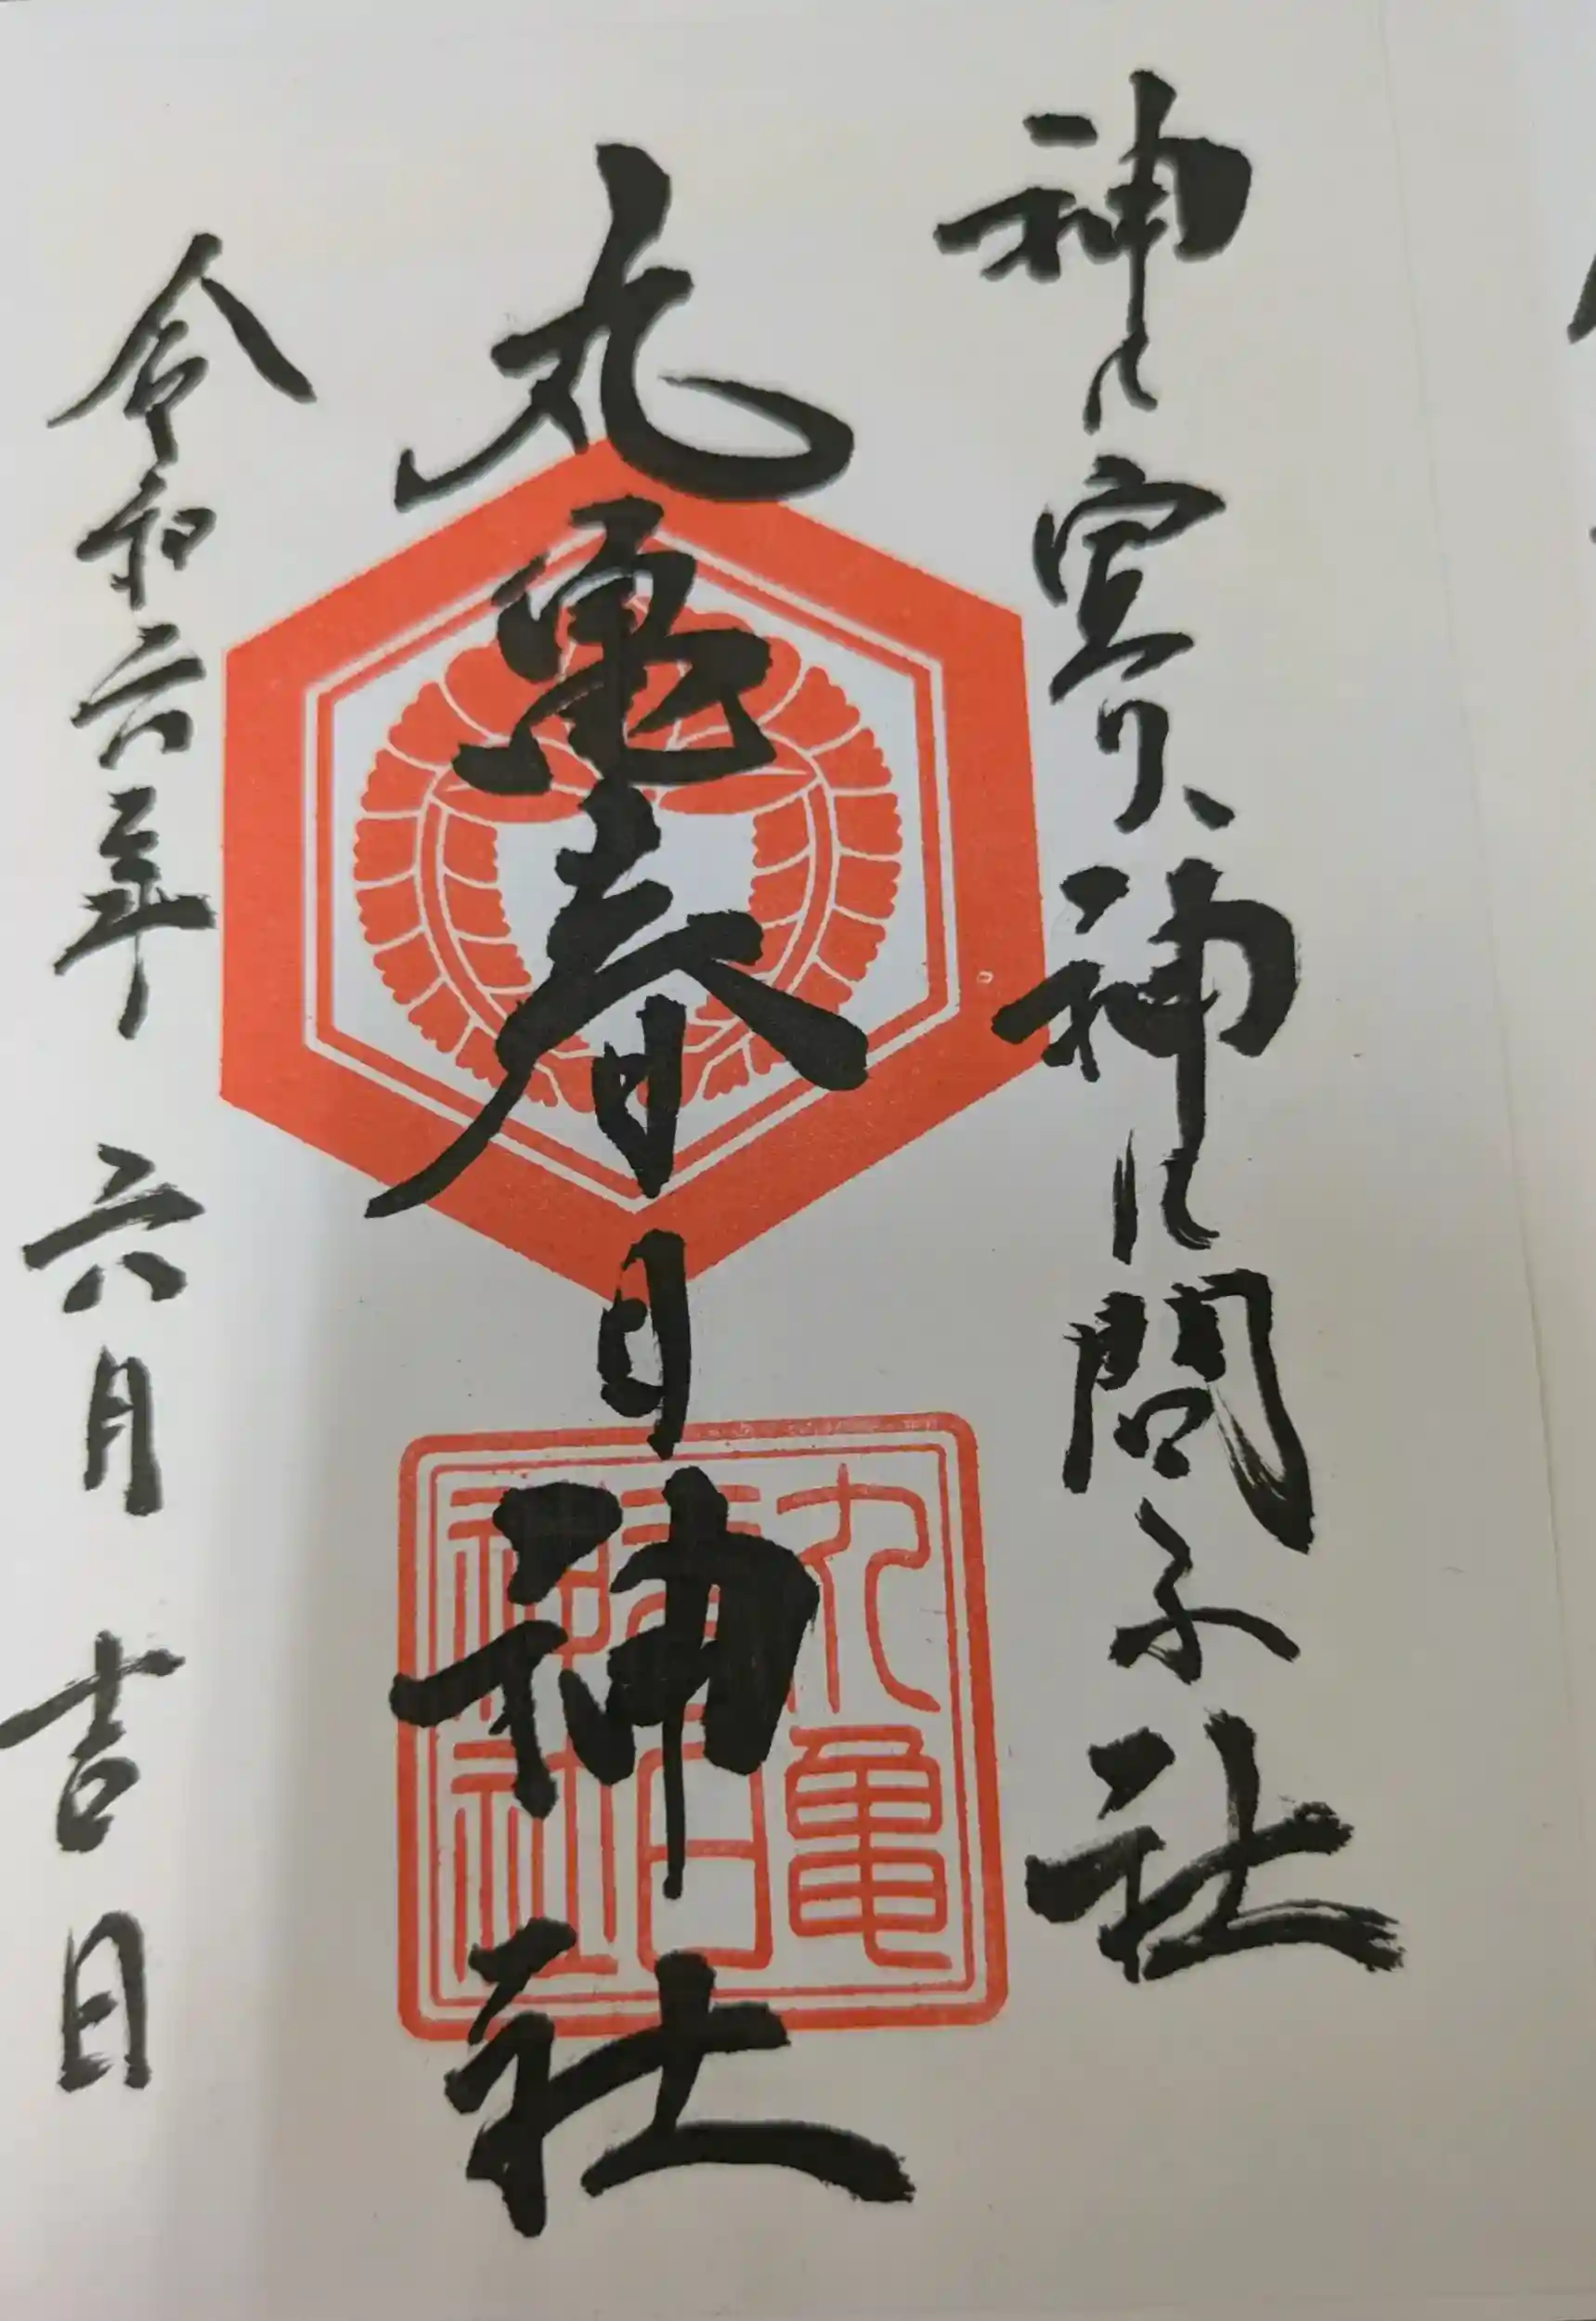 神と 神に問ふ社
丸亀春日神社
令和六年 六月 吉日
丸亀
春日
神社